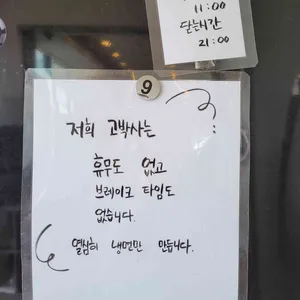 11:00
닫는시간
21:00
9
저희 고박사는
휴무도 없고
브레이크 타임도
없습니다.
열심히 냉면만 만듭니다.